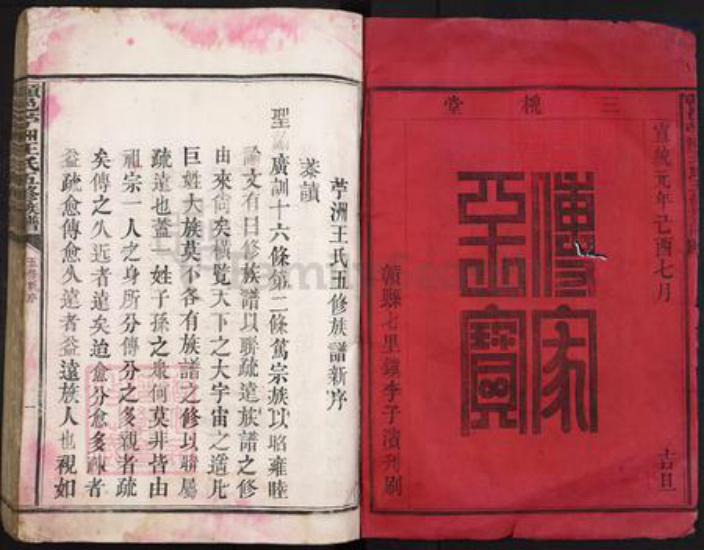 三槐堂
宣統元年己酉七月
吉旦
傳家至寶
贛縣七里鎮李子濱刊刷
苧洲王氏五修族譜新序
恭讀
聖諭廣訓十六條第二條篤宗族以昭雍睦
諭文有曰修族譜以聯疏遠族譜之修
由來尚矣橫覽天下之大宇宙之遙凡
巨姓大族莫不各有族譜之修以聯屬
疏遠也蓋一姓子孫之衆何莫非皆由
祖宗一人之身所分傳分之多親者疏
矣傳之久近者遠矣迨愈分愈多疎者
益疏愈傳愈久遠者益遠族人也視如
洲王氏五修族譜
五修新序
一